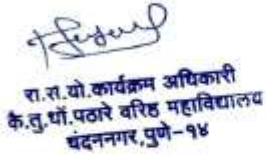 रा.से.यो.कार्यक्रम अधिकारी
कै.तु.धों.पठारे वरिष्ठ महाविद्यालय
चंदननगर,पुणे-१४